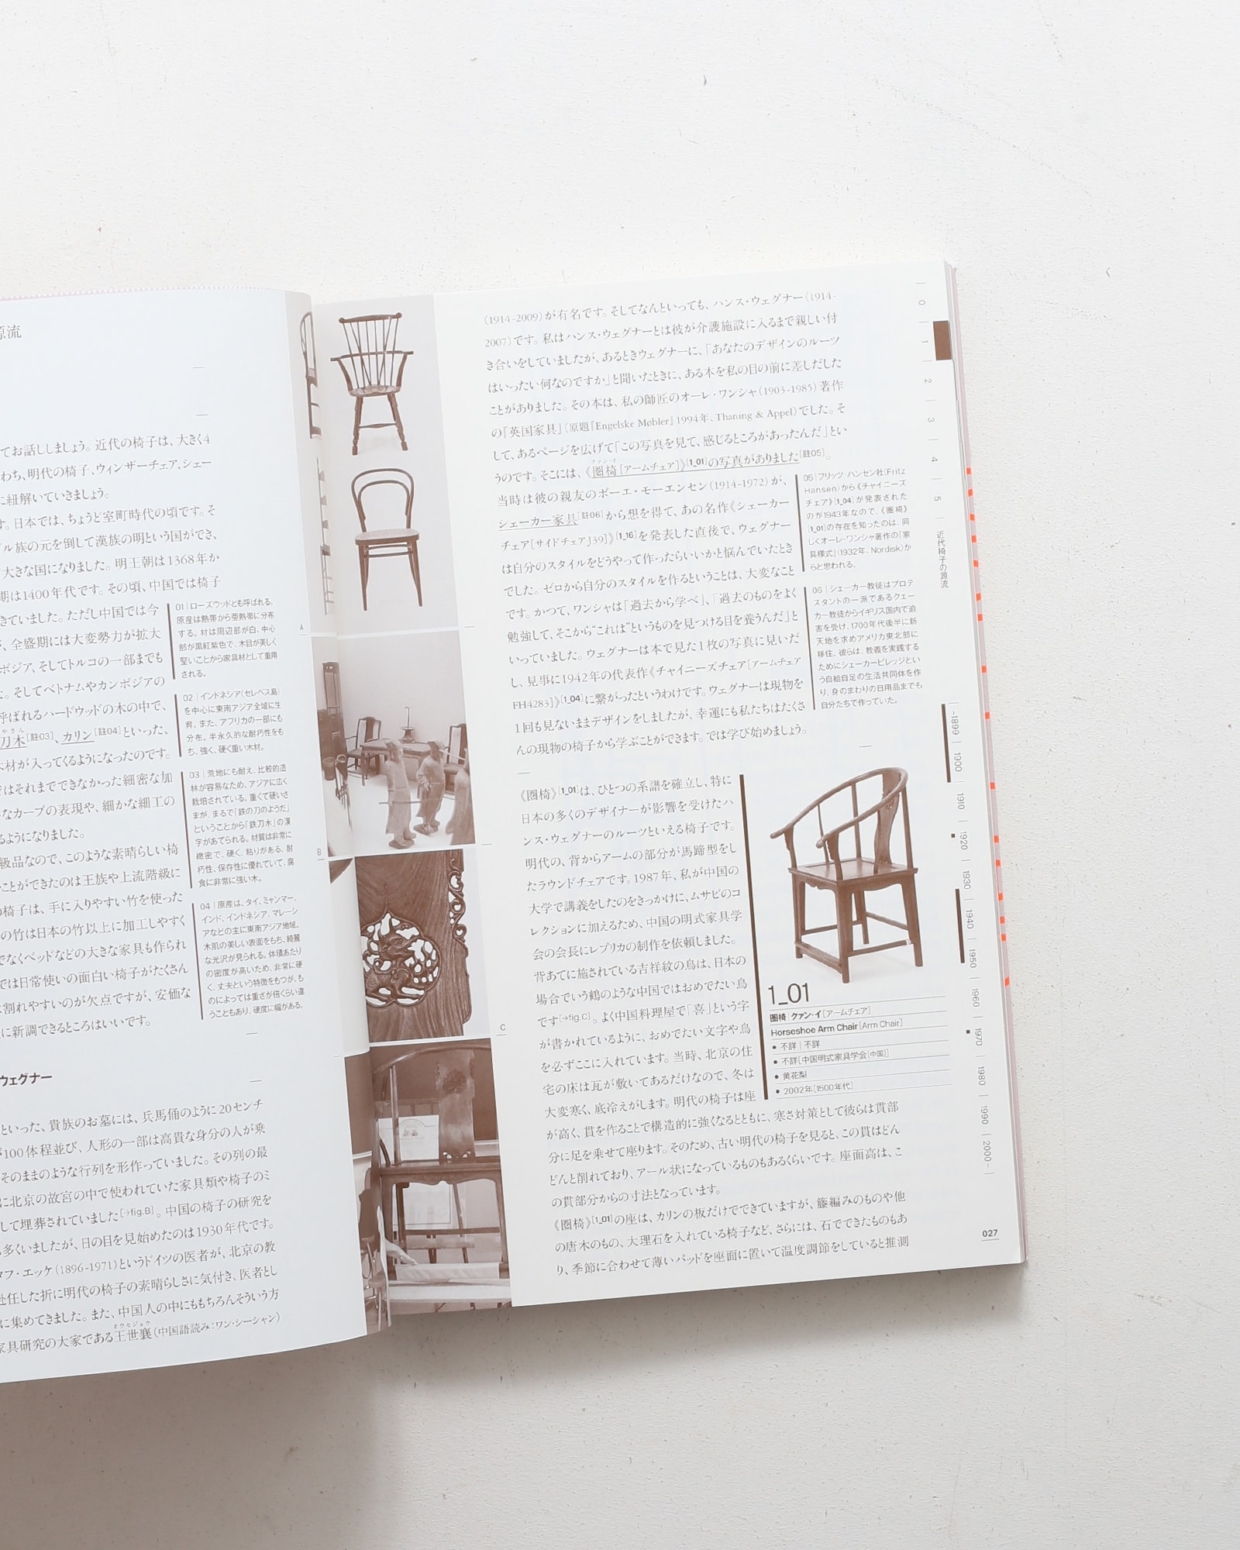 源流
てお話ししましょう。近代の椅子は、大きく4
わち、明代の椅子、ウィンザーチェア、シェー
に紐解いていきましょう。
す。日本では、ちょうど室町時代の頃です。そ
ル族の元を倒して漢族の明という国ができ、
大きな国になりました。明王朝は1368年か
期は1400年代です。その頃、中国では椅子
きていました。ただし中国では今
、全盛期には大変勢力が拡大
ボジア、そしてトルコの一部までも
。そしてベトナムやカンボジアの
呼ばれるハードウッドの木の中で、
刀木[註03]、カリン[註04]といった、
材が入ってくるようになったのです。
はそれまでできなかった細密な加
なカーブの表現や、細かな細工の
るようになりました。
級品なので、このような素晴らしい椅
ことができたのは王族や上流階級に
の椅子は、手に入りやすい竹を使った
の竹は日本の竹以上に加工しやすく
でなくベッドなどの大きな家具も作られ
では日常使いの面白い椅子がたくさん
割れやすいのが欠点ですが、安価な
に新調できるところはいいです。
01|ローズウッドとも呼ばれる。
原産は熱帯から亜熱帯に分布
する。材は周辺部が白、中心
部が黒紅紫色で、木目が美しく
堅いことから家具材として重用
される。
02|インドネシア(セレベス島)
を中心に東南アジア全域に生
育。また、アフリカの一部にも
分布。半永久的な耐朽性をも
ち、強く、硬く重い木材。
03|荒地にも耐え、比較的造
林が容易なため、アジアに広く
栽培されている。重くて硬いさ
まが、まるで「鉄の刀のようだ」
ということから「鉄刀木」の漢
字があてられる。材質は非常に
緻密で、硬く、粘りがある。耐
朽性、保存性に優れていて、腐
食に非常に強い木。
04|原産は、タイ、ミャンマー、
インド、インドネシア、マレーシ
アなどの主に東南アジア地域。
木肌の美しい表面をもち、綺麗
な光沢が見られる。体積あたり
の密度が高いため、非常に硬
く、丈夫という特徴をもつが、も
のによっては重さが倍くらい違
うこともあり、硬度に幅がある。
ウェグナー
といった、貴族のお墓には、兵馬俑のように20センチ
100体程並び、人形の一部は高貴な身分の人が乗
そのままのような行列を形作っていました。その列の最
に北京の故宮の中で使われていた家具類や椅子のミ
して埋葬されていました[→fig.B]。中国の椅子の研究を
多くいましたが、日の目を見始めたのは1930年代です。
タフ・エッケ(1896-1971)というドイツの医者が、北京の教
赴任した折に明代の椅子の素晴らしさに気付き、医者とし
に集めてきました。また、中国人の中にももちろんそういう方
家具研究の大家である王世襄(中国語読み:ワン・シーシャン)
A
B
C
(1914-2009)が有名です。そしてなんといっても、ハンス・ウェグナー(1914-
2007)です。私はハンス・ウェグナーとは彼が介護施設に入るまで親しい付
き合いをしていましたが、あるときウェグナーに、「あなたのデザインのルーツ
はいったい何なのですか」と聞いたときに、ある本を私の目の前に差しだした
ことがありました。その本は、私の師匠のオーレ・ワンシャ(1903-1985)著作
の『英国家具』(原題『Engelske Møbler』1994年、Thaning & Appel)でした。そ
して、あるページを広げて「この写真を見て、感じるところがあったんだ」とい
うのです。そこには、《圏椅[アームチェア]》[1_01]の写真がありました[註05]。
当時は彼の親友のボーエ・モーエンセン(1914-1972)が、
シェーカー家具[註06]から想を得て、あの名作《シェーカー
チェア[サイドチェアJ39]》[1_16]を発表した直後で、ウェグナー
は自分のスタイルをどうやって作ったらいいかと悩んでいたとき
でした。ゼロから自分のスタイルを作るということは、大変なこと
です。かつて、ワンシャは「過去から学べ」、「過去のものをよく
勉強して、そこから“これは”というものを見つける目を養うんだ」と
いっていました。ウェグナーは本で見た1枚の写真に見いだ
し、見事に1942年の代表作《チャイニーズチェア[アームチェア
FH4283]》[1_04]に繋がったというわけです。ウェグナーは現物を
1回も見ないままデザインをしましたが、幸運にも私たちはたくさ
んの現物の椅子から学ぶことができます。では学び始めましょう。
05|フリッツ・ハンセン社(Fritz
Hansen)から《チャイニーズ
チェア》[1_04]が発表された
のが1943年なので、《圏椅》
[1_01]の存在を知ったのは、同
じくオーレ・ワンシャ著作の『家
具様式』(1932年、Nordisk)か
らと思われる。
06|シェーカー教徒はプロテ
スタントの一派であるクェー
カー教徒からイギリス国内で迫
害を受け、1700年代後半に新
天地を求めアメリカ東北部に
移住。彼らは、教義を実践する
ためにシェーカービレッジとい
う自給自足の生活共同体を作
り、身のまわりの日用品までも
自分たちで作っていた。
《圏椅》[1_01]は、ひとつの系譜を確立し、特に
日本の多くのデザイナーが影響を受けたハ
ンス・ウェグナーのルーツといえる椅子です。
明代の、背からアームの部分が馬蹄型をし
たラウンドチェアです。1987年、私が中国の
大学で講義をしたのをきっかけに、ムサビのコ
レクションに加えるため、中国の明式家具学
会の会長にレプリカの制作を依頼しました。
背あてに施されている吉祥紋の鳥は、日本の
場合でいう鶴のような中国ではおめでたい鳥
です[→fig.C]。よく中国料理屋で「喜」という字
が書かれているように、おめでたい文字や鳥
を必ずここに入れています。当時、北京の住
宅の床は瓦が敷いてあるだけなので、冬は
大変寒く、底冷えがします。明代の椅子は座
が高く、貫を作ることで構造的に強くなるとともに、寒さ対策として彼らは貫部
分に足を乗せて座ります。そのため、古い明代の椅子を見ると、この貫はどん
どんと削れており、アール状になっているものもあるくらいです。座面高は、こ
の貫部分からの寸法となっています。
《圏椅》[1_01]の座は、カリンの板だけでできていますが、籐編みのものや他
の唐木のもの、大理石を入れている椅子など、さらには、石でできたものもあ
り、季節に合わせて薄いパッドを座面に置いて温度調節をしていると推測
1_01
圏椅 クァン・イ[アームチェア]
Horseshoe Arm Chair[Arm Chair]
● 不詳|不詳
● 不詳[中国明式家具学会[中国]]
● 黄花梨
● 2002年[1500年代]
0
1
2
3
4
5
近代椅子の源流
-1899
1900
1910
1920
1930
1940
1950
1960
1970
1980
1990
2000-
027